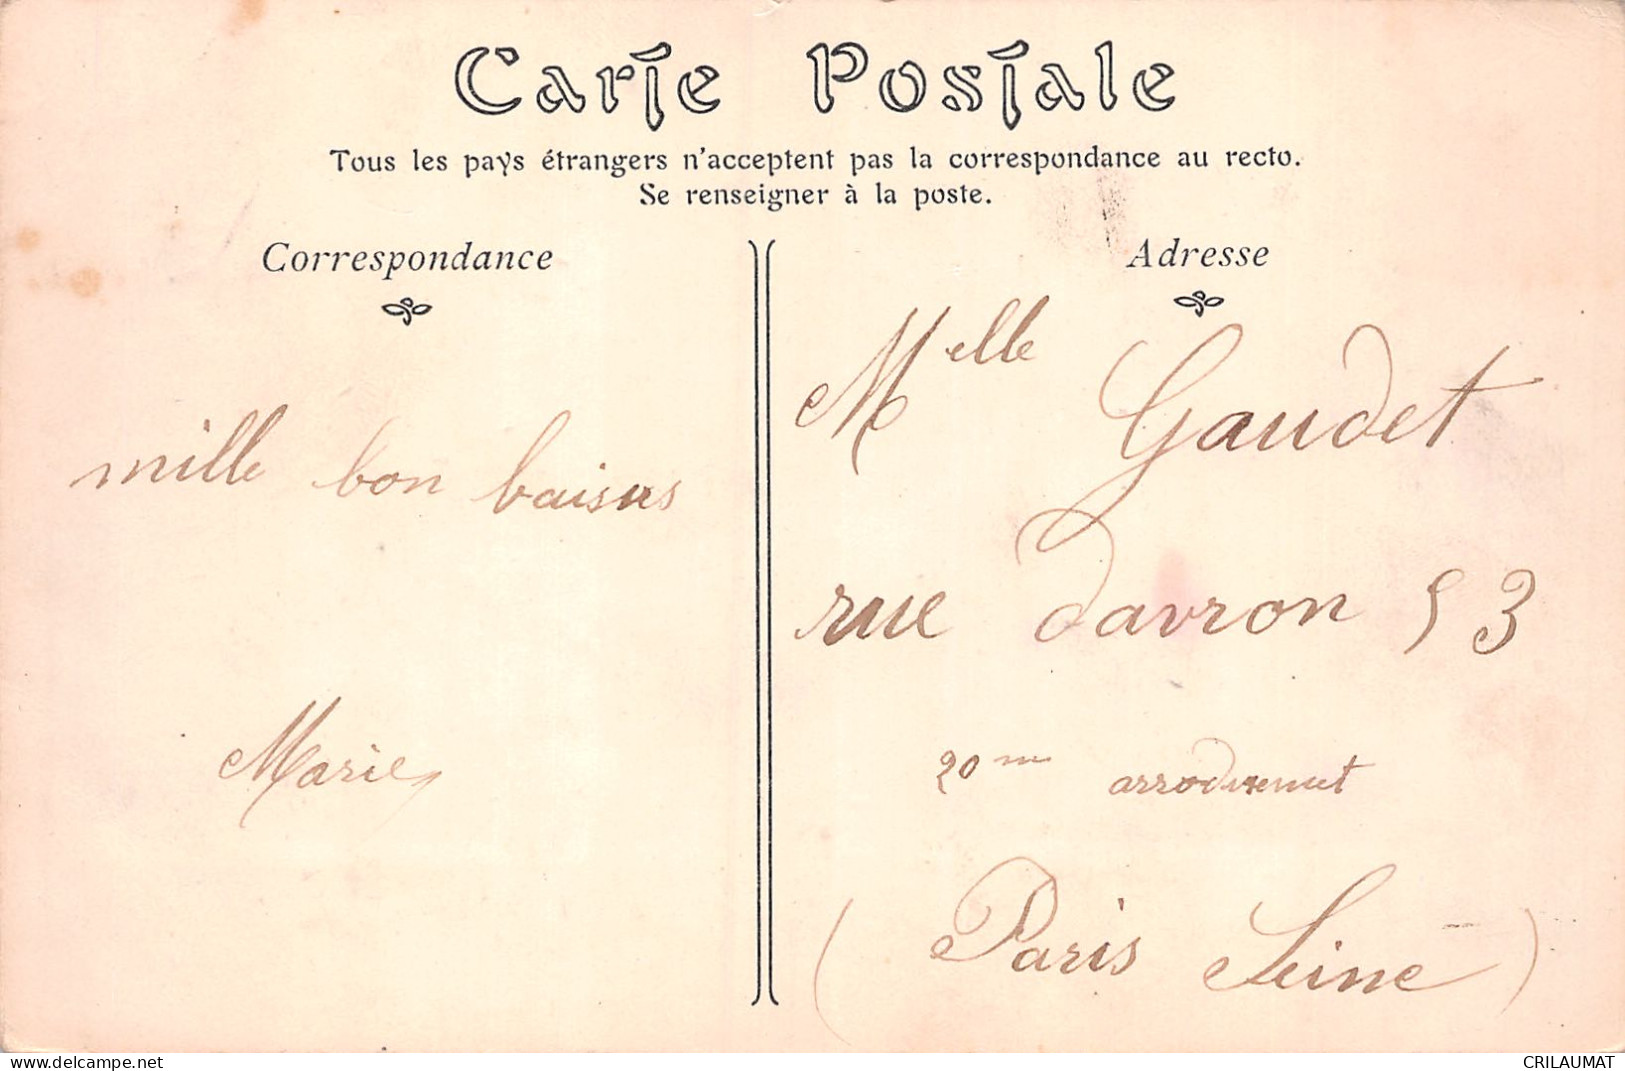 Carte Postale
Tous les pays étrangers n'acceptent pas la correspondance au recto.
Se renseigner à la poste.
Correspondance
mille bon baisers
Marie
Adresse
Melle Gaudet
rue davron 53
20me arrodiement
(Paris Seine)
www.delcampe.net
CRILAUMAT